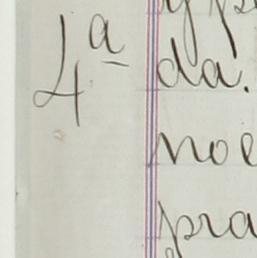 4ª
da.
noe
pra